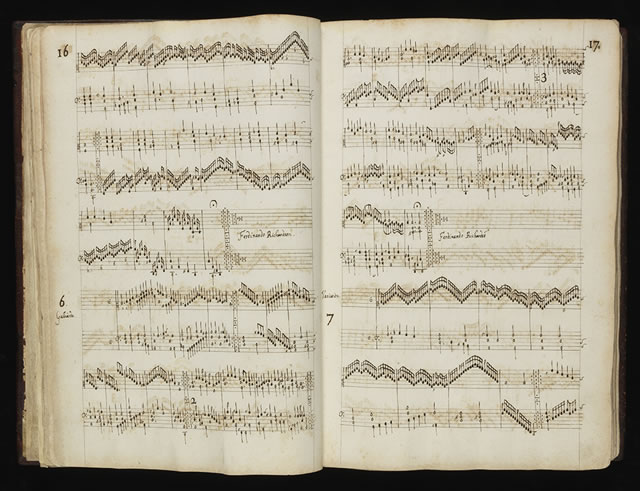 16
Ferdinando Richardson
6
Galiarda
2
17
3
Ferdinando Richardson
Variatio
7